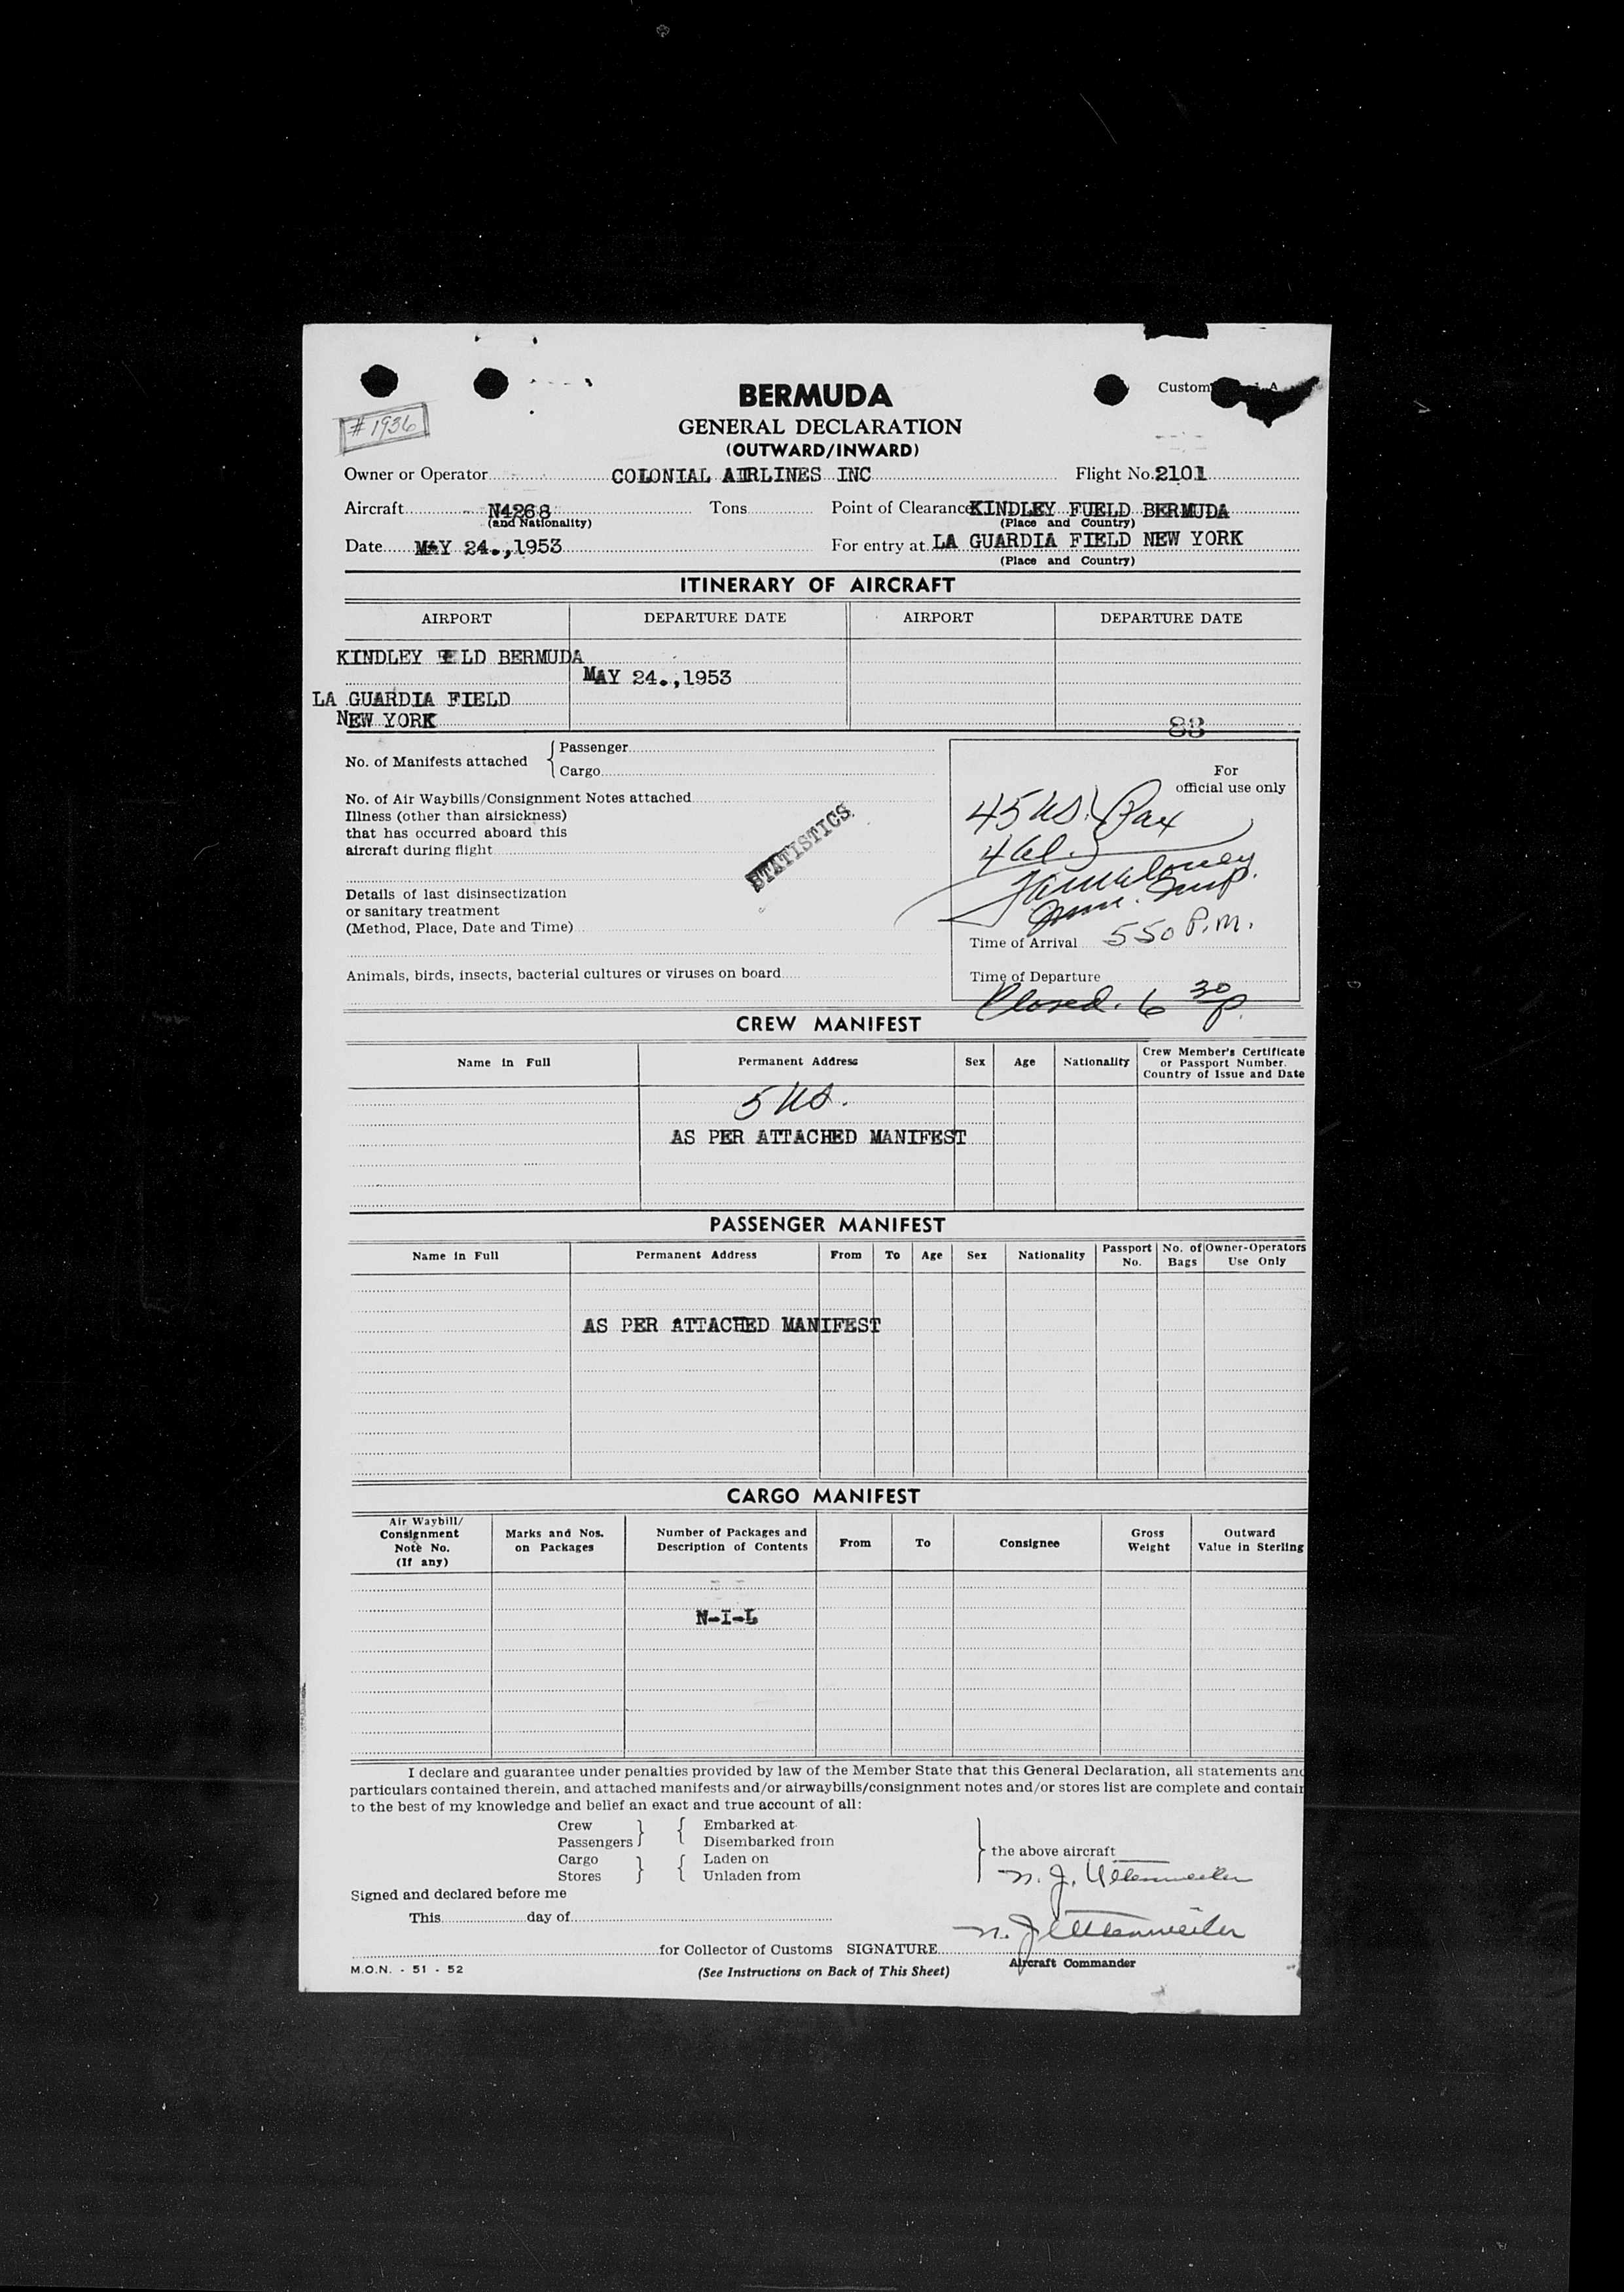 Custom
BERMUDA
# 1936
GENERAL DECLARATION
(OUTWARD/INWARD)
Owner or Operator COLONIAL AIRLINES INC Flight No. 2101
Aircraft N4268 Tons Point of Clearance KINDLEY FUELD BERMUDA
(and Nationality) (Place and Country)
Date MAY 24.,1953 For entry at LA GUARDIA FIELD NEW YORK
(Place and Country)
ITINERARY OF AIRCRAFT
AIRPORT DEPARTURE DATE AIRPORT DEPARTURE DATE
KINDLEY LD BERMUDA
MAY 24.,1953
LA GUARDIA FIELD
NEW YORK
83
No. of Manifests attached { Passenger
Cargo
For
official use only
No. of Air Waybills/Consignment Notes attached
Illness (other than airsickness)
that has occurred aboard this
aircraft during flight
STATISTICS
45 US. Pax
4
Imm. Insp.
Details of last disinsectization
or sanitary treatment
(Method, Place, Date and Time)
Time of Arrival 550 P.M.
Animals, birds, insects, bacterial cultures or viruses on board
Time of Departure
Closed. 6 30 p.
CREW MANIFEST
Name in Full Permanent Address Sex Age Nationality Crew Member's Certificate
or Passport Number.
Country of Issue and Date
5 US.
AS PER ATTACHED MANIFEST
PASSENGER MANIFEST
Name in Full Permanent Address From To Age Sex Nationality Passport No. No. of Bags Owner-Operators Use Only
AS PER ATTACHED MANIFEST
CARGO MANIFEST
Air Waybill/
Consignment
Note No.
(If any)
Marks and Nos.
on Packages
Number of Packages and
Description of Contents
From To Consignee
Gross
Weight
Outward
Value in Sterling
N-I-L
I declare and guarantee under penalties provided by law of the Member State that this General Declaration, all statements and
particulars contained therein, and attached manifests and/or airwaybills/consignment notes and/or stores list are complete and contain
to the best of my knowledge and belief an exact and true account of all:
Crew } { Embarked at
Passengers Disembarked from
Cargo } { Laden on
Stores Unladen from
} the above aircraft
N. J. Uttenweiler
Signed and declared before me
This day of
N. J. Uttenweiler
for Collector of Customs SIGNATURE
Aircraft Commander
M.O.N. - 51 - 52
(See Instructions on Back of This Sheet)